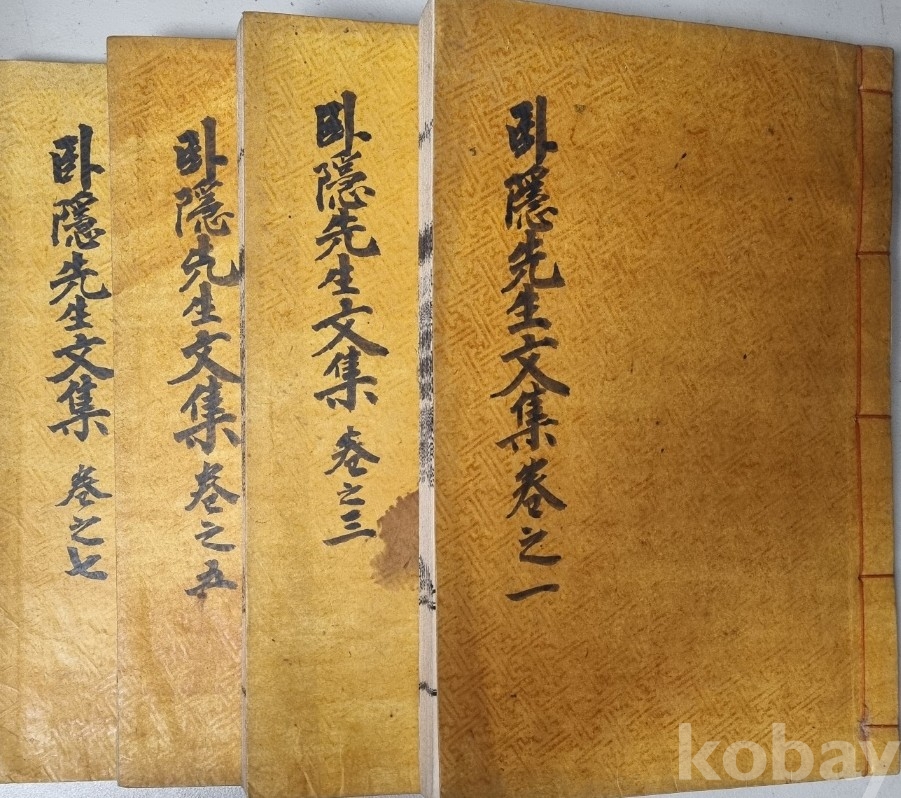 臥隱先生文集 卷之一
臥隱先生文集 卷之三
臥隱先生文集 卷之五
臥隱先生文集 卷之七
kobay